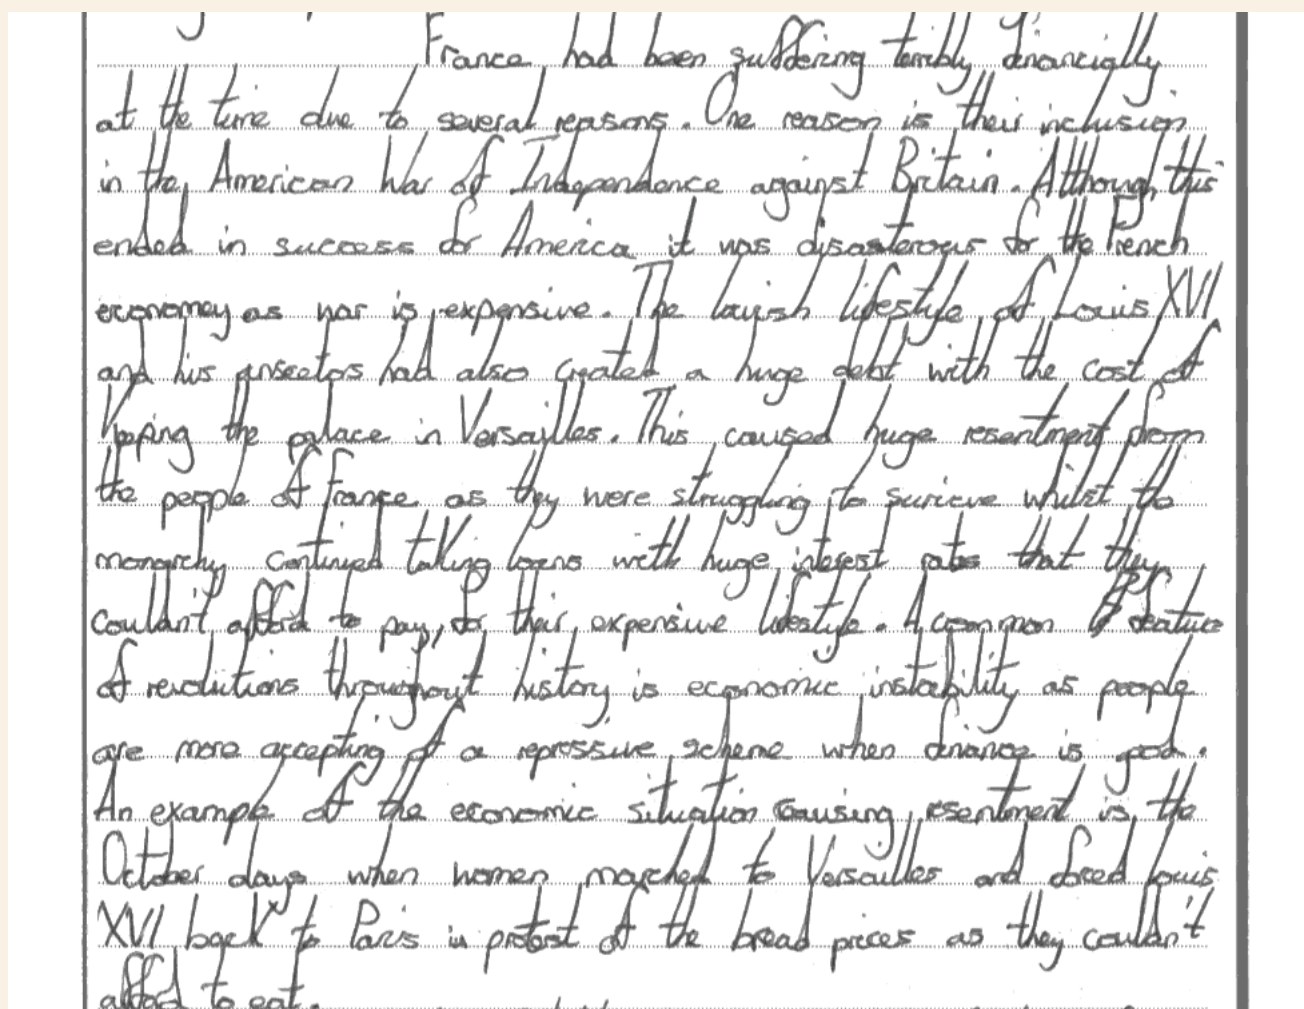 France had been suffering terribly financially
at the time due to several reasons. One reason is their inclusion
in the American War of Independence against Britain. Although this
ended in success for America it was disasterous for the French
economey as war is expensive. The lavish lifestyle of Louis XVI
and his ansectors had also created a huge debt with the cost of
keeping the palace in Versailles. This caused huge resentment from
the people of France as they were struggling to surieve whilst the
monarchy continued taking loans with huge interest rates that they
couldn't afford to pay, for their expensive lifestyle. A common feature
of revolutions throughout history is economic instability as people
are more accepting of a repressive scheme when finance is good.
An example of the economic situation causing resentment is the
October days when women marched to Versailles and forced Louis
XVI back to Paris in protest of the bread prices as they couldn't
afford to eat.